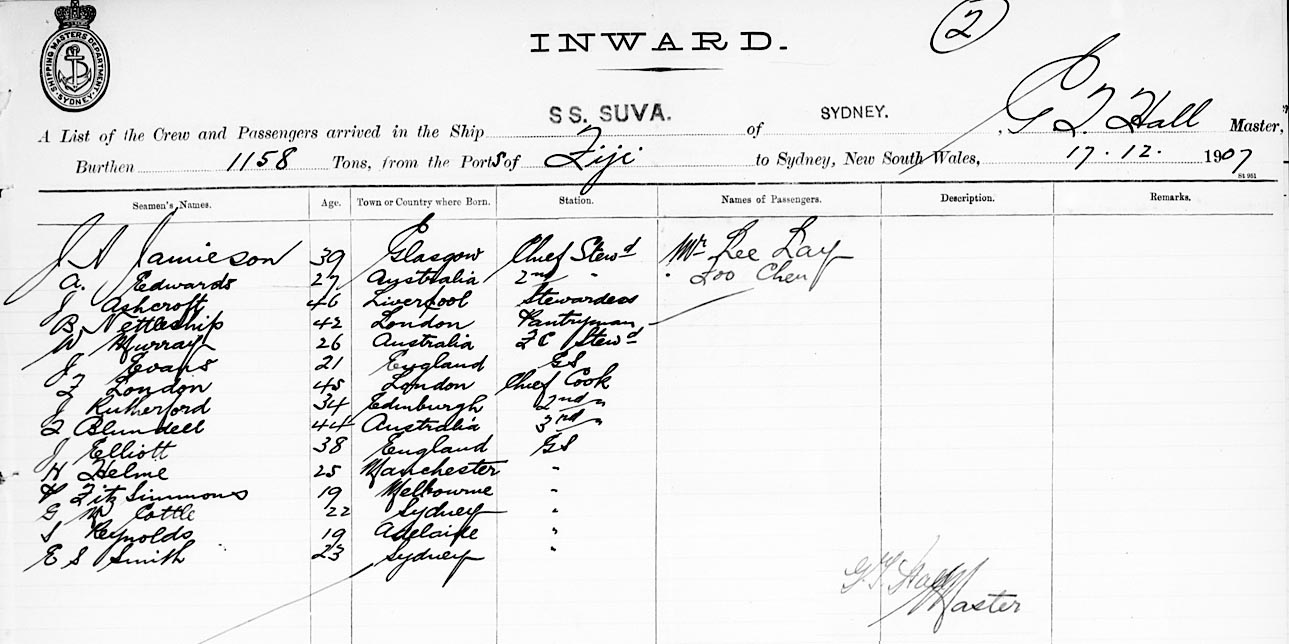 2
SHIPPING MASTERS DEPARTMENT
SYDNEY
INWARD.
SS. SUVA. SYDNEY.
A List of the Crew and Passengers arrived in the Ship of , G T Hall Master,
Burthen 1158 Tons, from the PortS of Fiji to Sydney, New South Wales, 17. 12. 1907
81 951
Seamen's Names. Age. Town or Country where Born. Station. Names of Passengers. Description. Remarks.
J A Jamieson 39 Glasgow Chief Stewd Mr Lee Lay
A. Edwards 27 Australia 2nd " " Foo Chen
J Ashcroft 46 Liverpool Stewardess
B Nettleship 42 London Pantryman
W Murray 26 Australia F C Stewd
J Evans 21 England GS
F London 45 London Chief Cook
J Rutherford 34 Edinburgh 2nd "
F Blundell 44 Australia 3rd "
J Elliott 38 England GS
H Helme 25 Manchester "
Fitzsimmons 19 Melbourne "
G W Cottle 22 Sydney "
S Reynolds 19 Adelaide "
E S Smith 23 Sydney "
Master